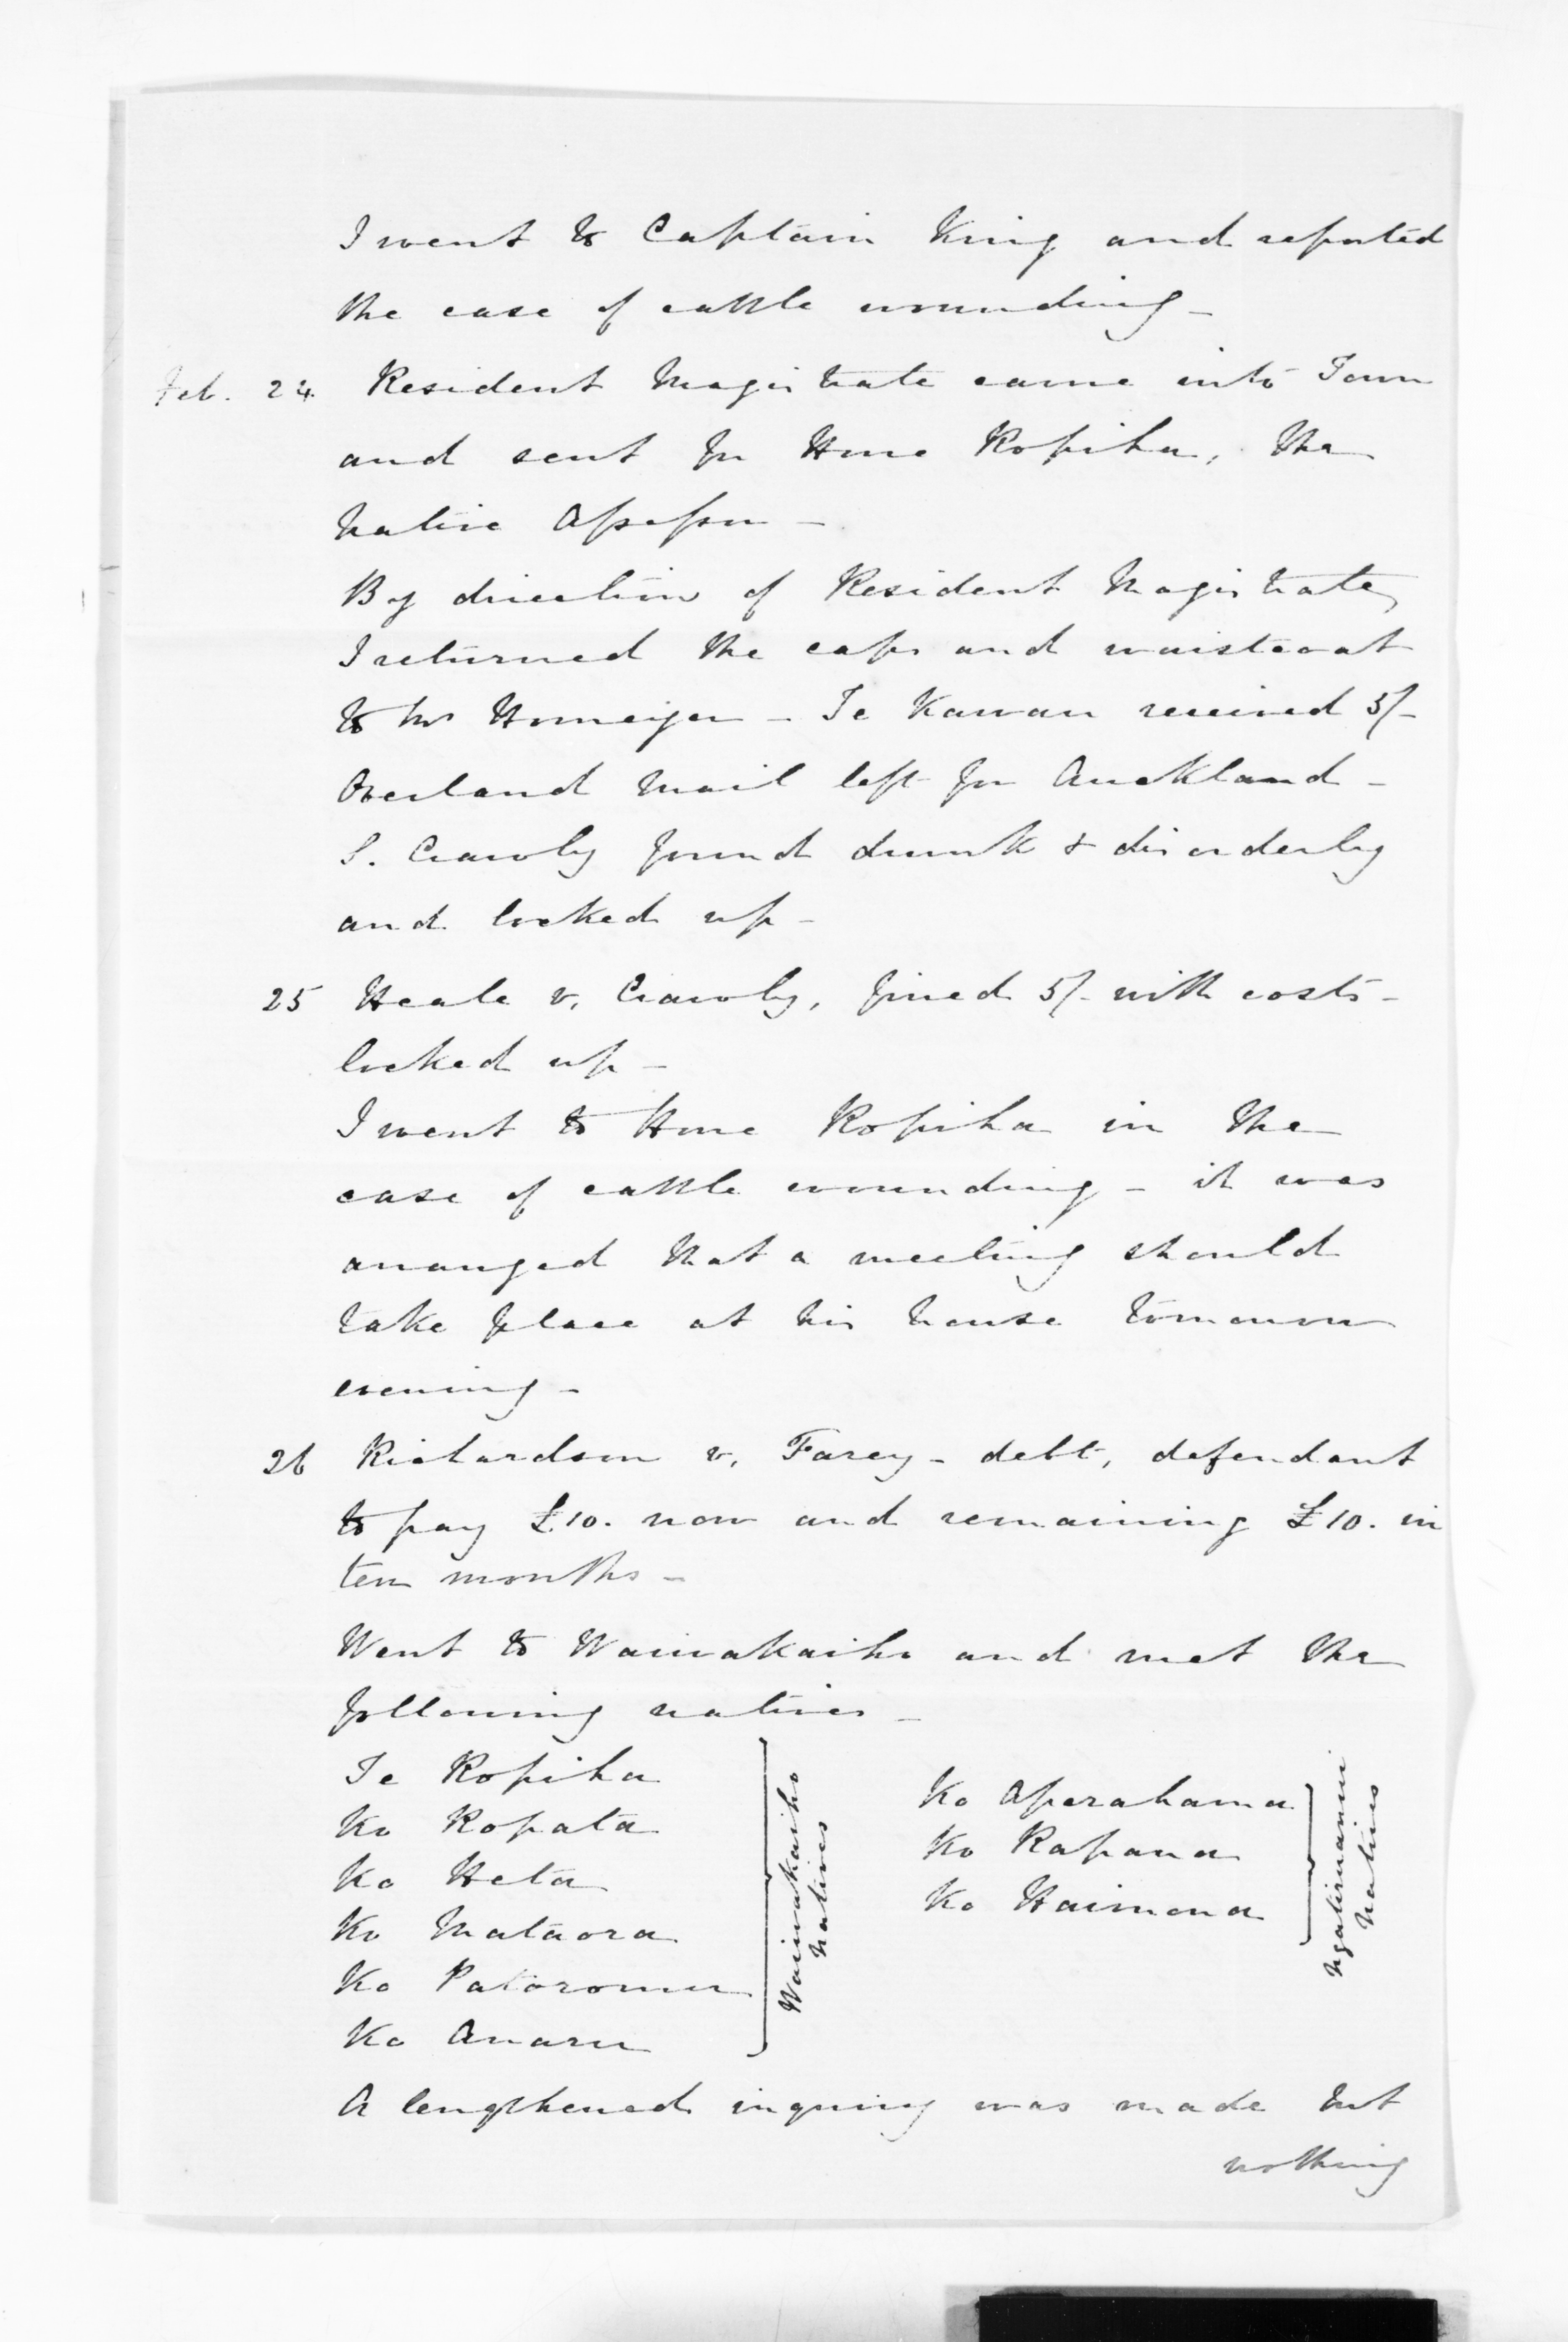 I went to Captain King and reported
the case of cattle wounding -
Feb. 24 Resident Magistrate came into Town
and sent for Hone Ropiha, the
Native Assessor -
By direction of Resident Magistrate,
I returned the caps and waistcoat
to Mr - Te Kawau received 5/-
Overland Mail left for Auckland -
S. Crawly found drunk & disorderly
and locked up -
25 Heale v. Crawly, fined 5/- with costs -
locked up -
I went to Hone Ropiha in the
case of cattle wounding - it was
arranged that a meeting should
take place at his house tomorrow
evening -
26 Richardson v. Farey - debt, defendant
to pay £10. now and remaining £10. in
ten months -
Went to Waiwakaiho and met the
following natives -
Te Ropiha
Ko Ropata
Ko Heta
Ko Mataora
Ko Patoromu
Ko Anaru
Waiwakaiho
Natives
Ko Aperahama
Ko Rapana
Ko Haimona
Ngatiruanui
Natives
A lengthened inquiry was made but
nothing